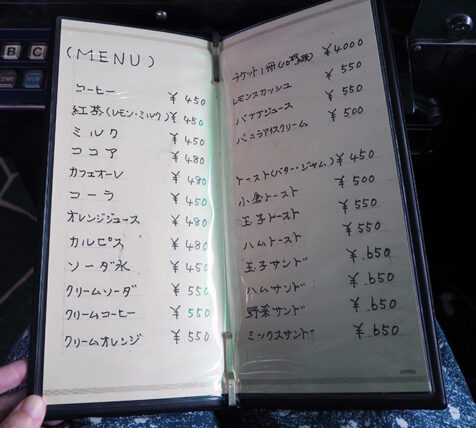 (MENU)
コーヒー ¥450
紅茶(レモン・ミルク) ¥450
ミルク ¥450
ココア ¥480
カフェオーレ ¥480
コーラ ¥450
オレンジジュース ¥480
カルピス ¥480
ソーダ水 ¥450
クリームソーダ ¥550
クリームコーヒー ¥550
クリームオレンジ ¥550
チケット1冊(10枚綴) ¥4000
レモンスカッシュ ¥550
バナナジュース ¥550
バニラアイスクリーム ¥500
トースト(バター・ジャム) ¥450
小倉トースト ¥500
玉子トースト ¥550
ハムトースト ¥550
玉子サンド ¥650
ハムサンド ¥650
野菜サンド ¥650
ミックスサンド ¥650
B C